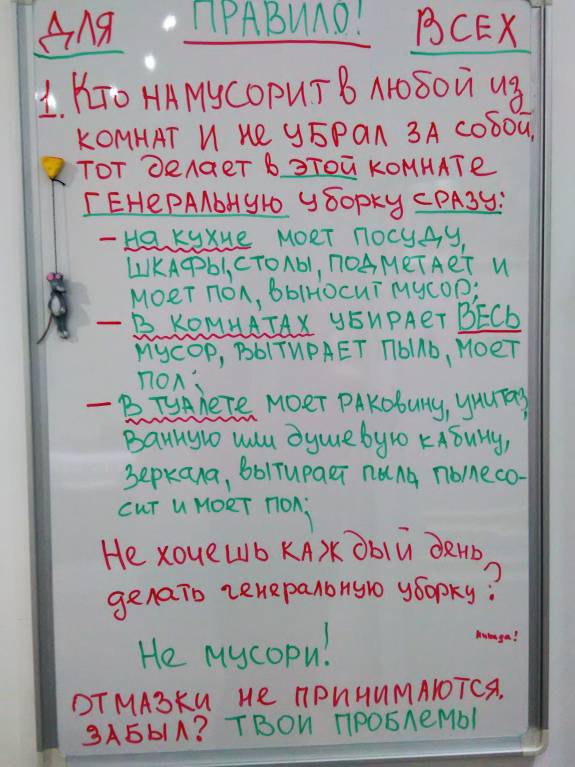 ДЛЯ ПРАВИЛО! ВСЕХ
1. Кто намусорит в любой из
комнат и не убрал за собой,
тот делает в этой комнате
ГЕНЕРАЛЬНУЮ уборку СРАЗУ:
– на кухне моет посуду,
шкафы, столы, подметает и
моет пол, выносит мусор;
– В комнатах убирает ВЕСЬ
мусор, вытирает пыль, моет
пол;
– В туалете моет раковину, унитаз,
ванную или душевую кабину,
зеркала, вытирает пыль, пылесо-
сит и моет пол;
Не хочешь каждый день
делать генеральную уборку?
Не мусори!
ОТМАЗКИ НЕ ПРИНИМАЮТСЯ.
ЗАБЫЛ? ТВОИ ПРОБЛЕМЫ